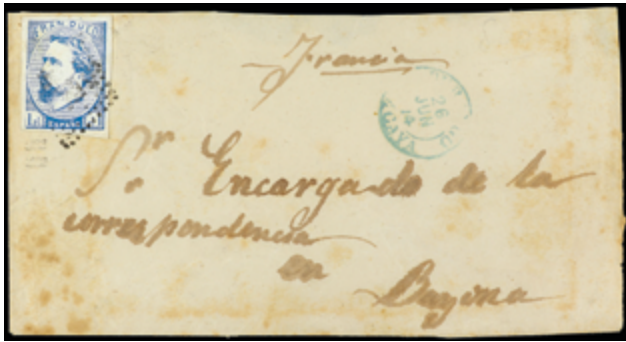 FRANQUEO
ESPAÑA
Francia
26
JUN
74
Sr Encargado de la
correspondencia
en
Bayona